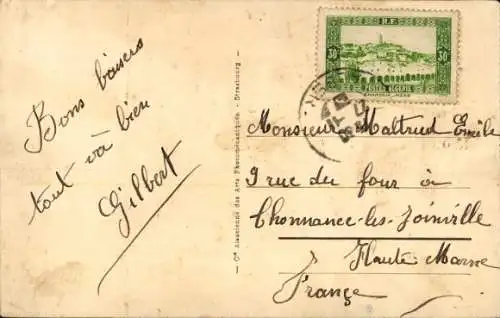 Bons baisers
tout va bien
Gilbert
Cie Alsacienne des Arts Photomécaniques - Strasbourg
R.F.
30 30
POSTES ALGERIE
GHARDAIA-MZAB
Monsieur Maltrud Emile
9 rue du four à
Chonnance-les-Joinville
Haute Marne
France